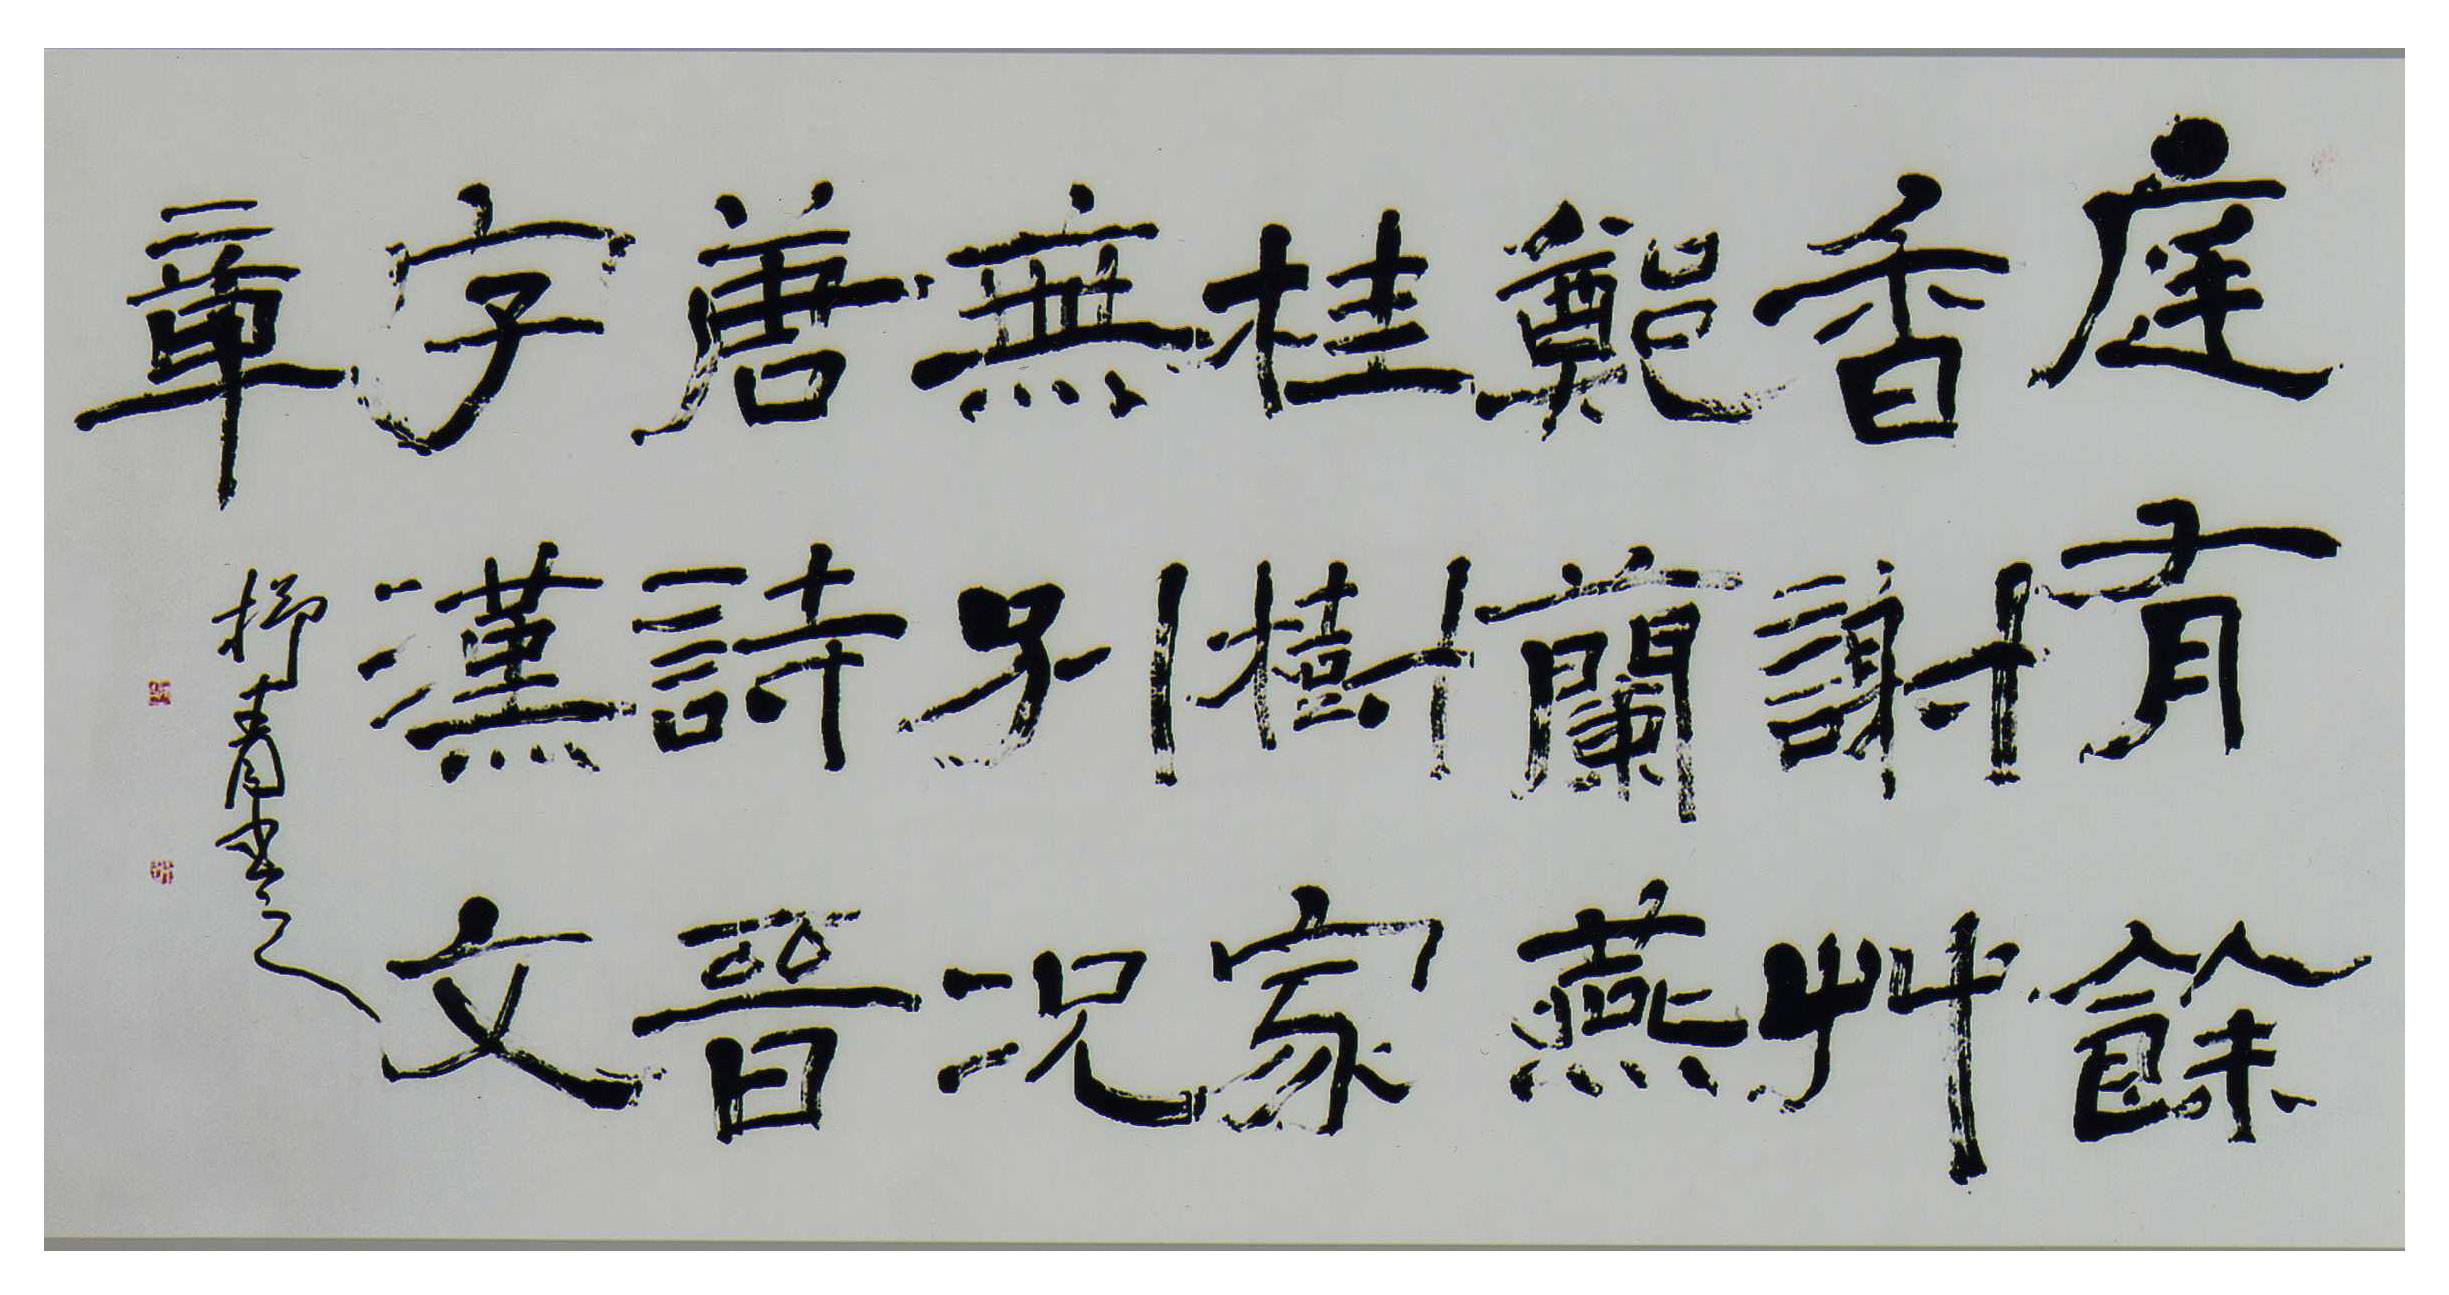 庭有餘
香謝艸
鄭蘭燕
桂樹家
無別況
唐詩晉
字漢文
章
青書之